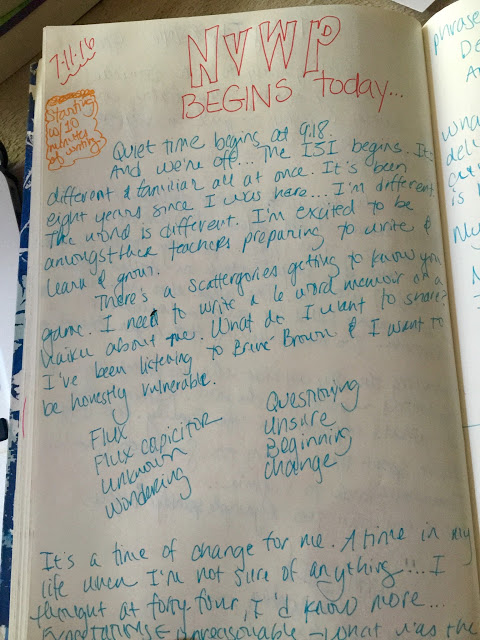 7-11-16
NVWP
BEGINS today...
Starting
w/ 10
minutes
of writing
Quiet time begins at 9:18.
And we're off... The ISI begins. It's
different & familiar all at once. It's been
eight years since I was here... I'm different.
The world is different. I'm excited to be
amongst teachers preparing to write &
learn & grow.
There's a scattergories getting to know you
game. I need to write a 6 word memoir or a
haiku about me. What do I want to share?
I've been listening to Brené Brown & I want to
be honestly vulnerable.
Flux
Flux capicitor
unknown
wondering
Questioning
unsure
Beginning
change
It's a time of change for me. A time in my
life when I'm not sure of anything!!... I
thought at forty-four, I'd know more...
Expectations = unreasonable - what was the
phrase
De
A
wha
deli
is
My